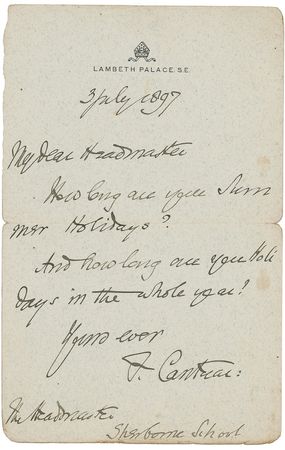 LAMBETH PALACE. S.E.
3 July 1897
My dear Headmaster
How long are your Sum
mer Holidays?
And how long are your Holi
days in the whole year?
Yours ever
F. Cantuar:
The Headmaster
Sherborne School